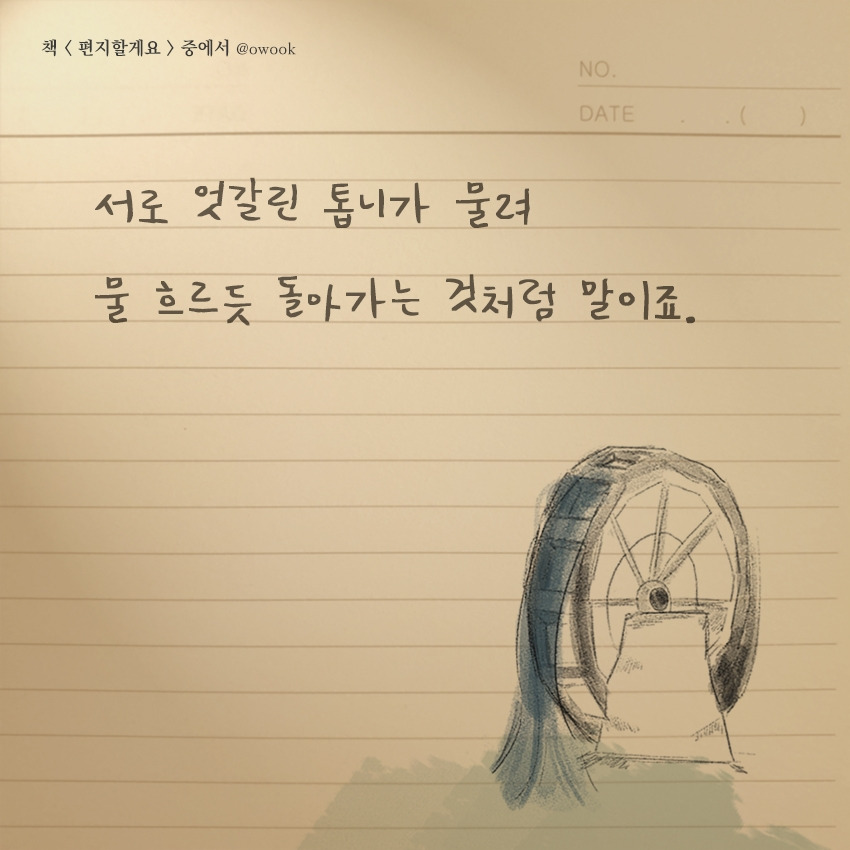 책 < 편지할게요 > 중에서 @owook
NO.
DATE . . ( )
서로 엇갈린 톱니가 물려
물 흐르듯 돌아가는 것처럼 말이죠.